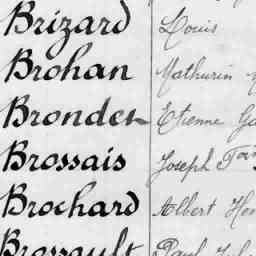 Brizard Louis
Brohan Mathurin
Bronder Etienne
Brossais Joseph
Brochard Albert
Brossault Paul